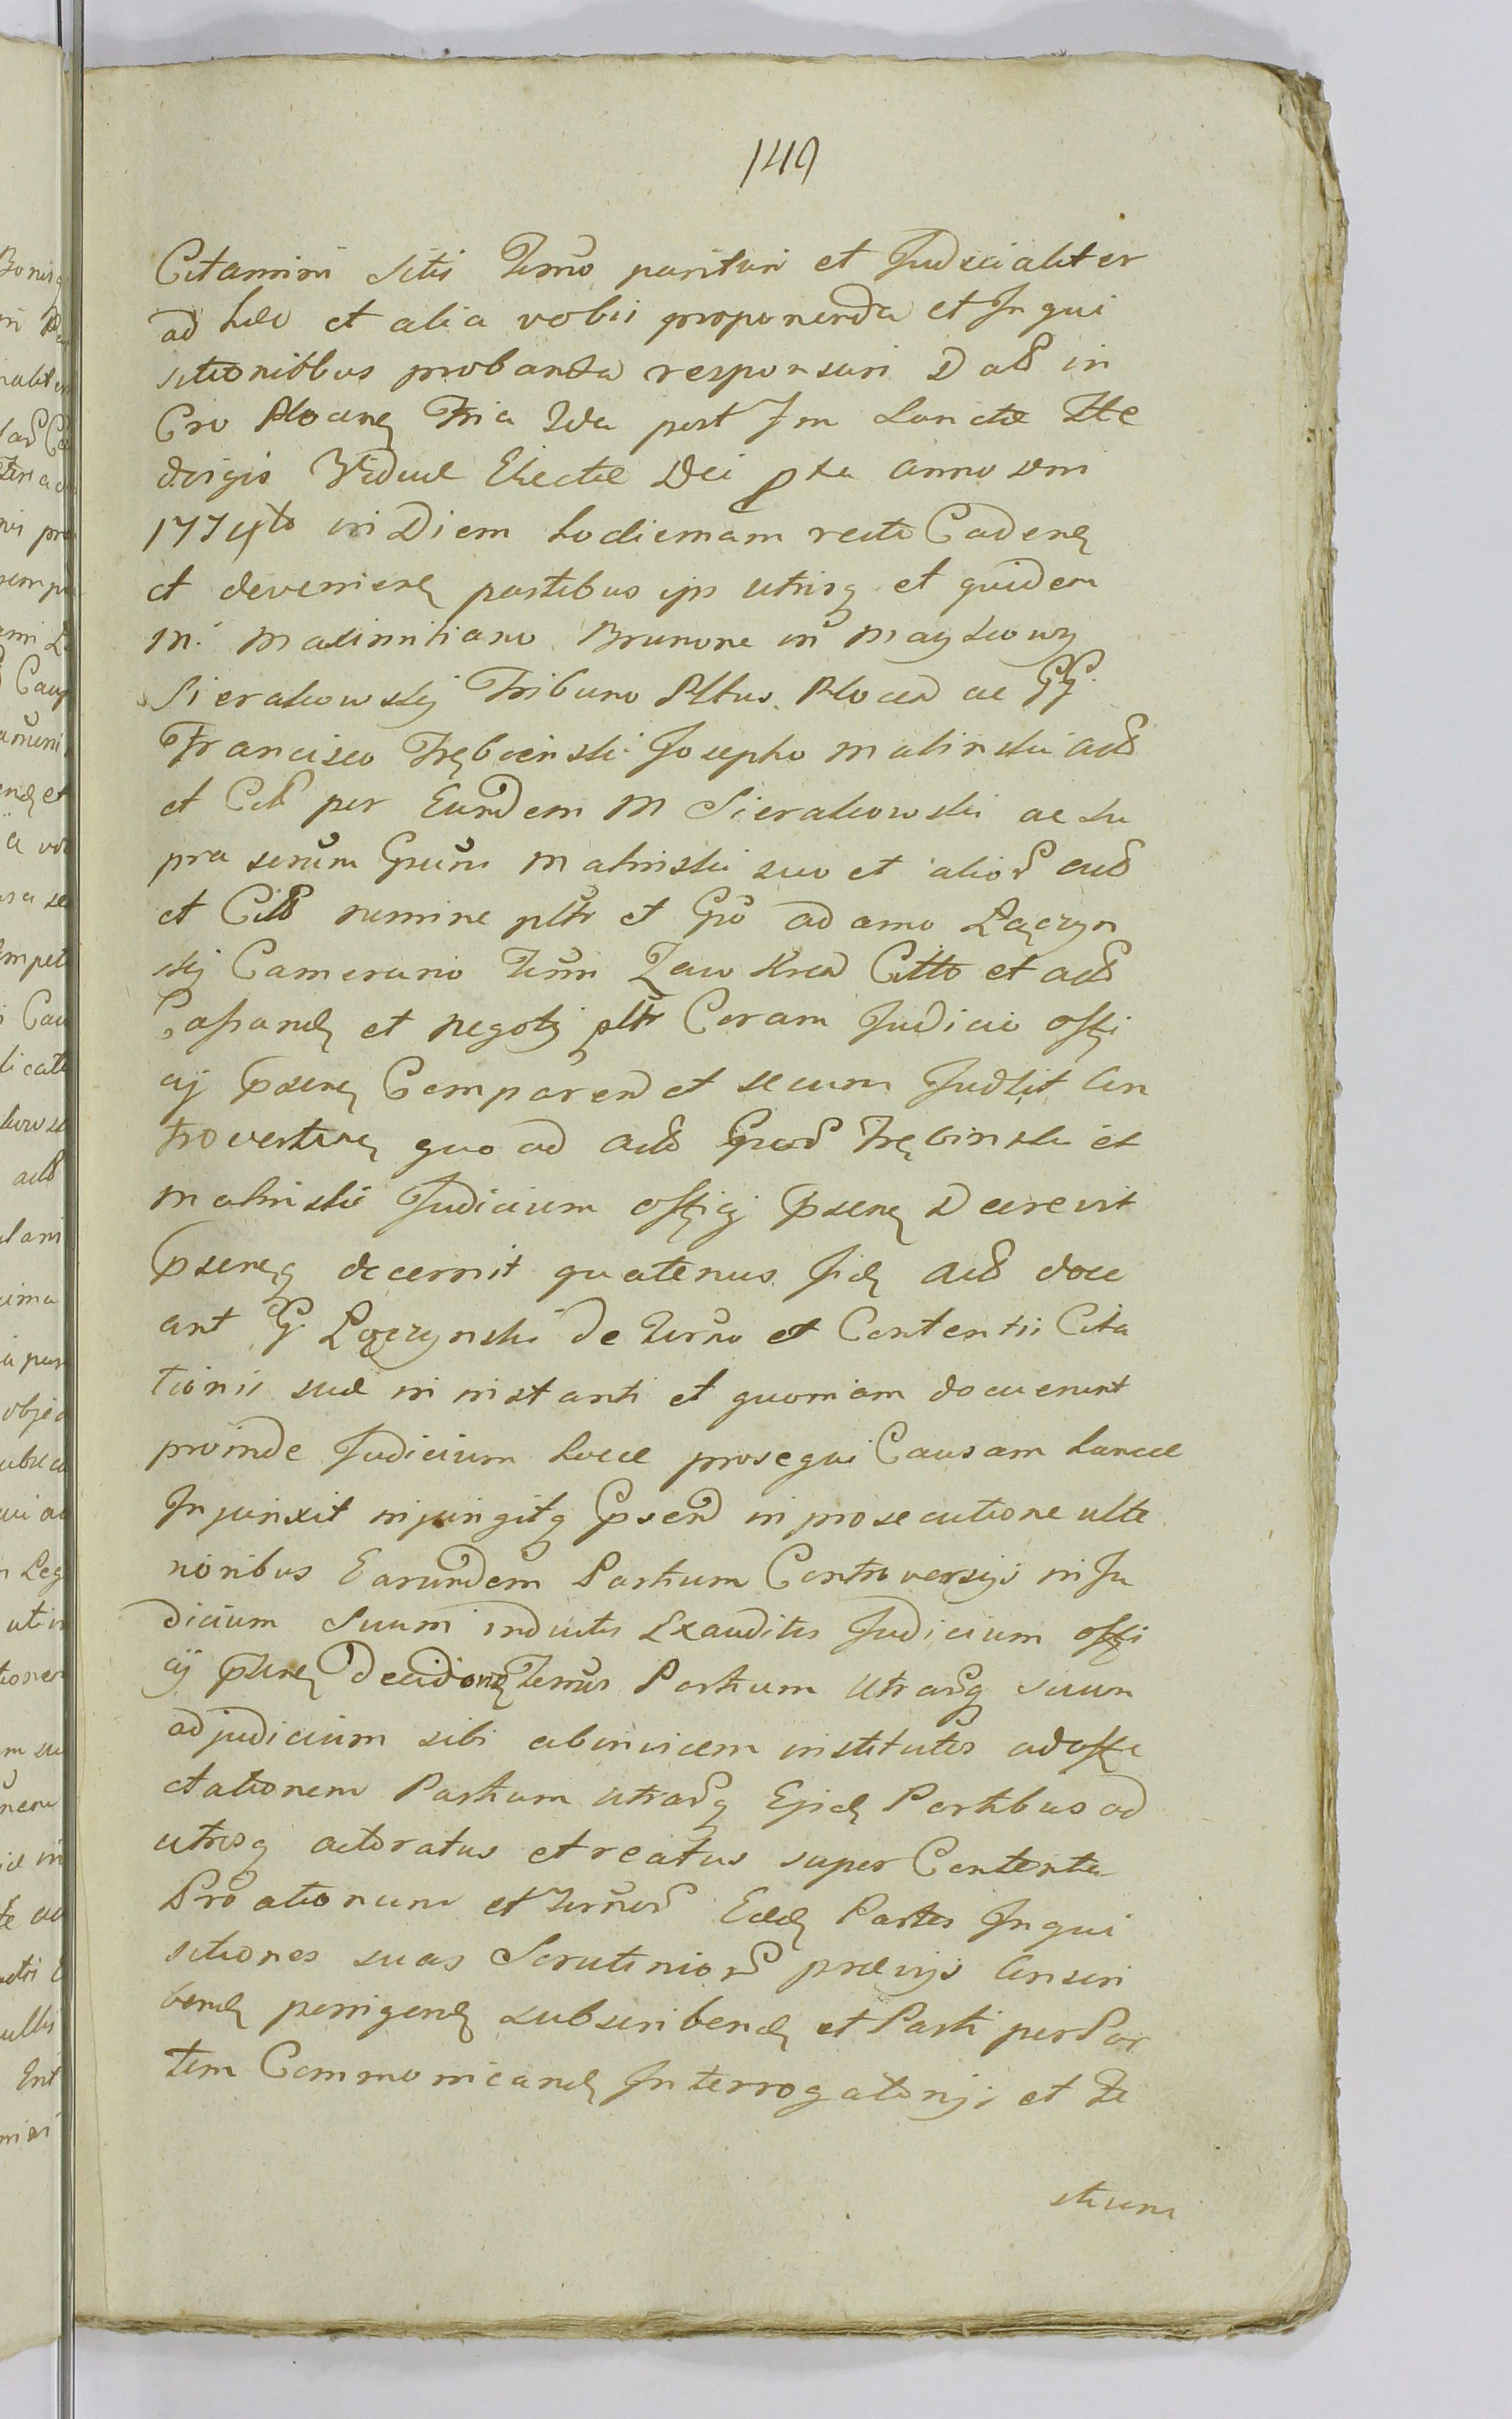 149
Citamini Sitis Termo parituri et Judicialiter
ad hæc et alia vobis proponenda et Inqui
sitionibus probanda responsuri Dat in
Cro Plocen Fria 2da post Fm Sanctæ He
dvigis Viduæ Electæ Dei pxa anno Dni
1774to in Diem hodiernam recte Caden
et devenien partibus ips utrisq et quidem
M. Maximiliano Brunone in Maykowy
Sierakowskij Tribuno Pltus Plocen ac GG.
Francisco Trębcinski Josepho Malinski act
et Cit per Eundem M Sierakowski ac su
pra scrum Grum Malinski suo et alior act
et Cit nomine pltr et Gro adamo Łączyn
skij Camerario Terrı Zawkren Citto et act
Caſsand et negotij pltr Coram Judicio offi
cij Psen Comparen et secum Judlit Con
trovertен quo ad act Gror Trębinski et
Malinski Judicium officij Psen Decrevit
Psenq decernit quatenus Iid act doce
ant G. Łączynski de Termo et Contentis Cita
tionis suæ in instanti et quoniam docuerunt
proinde Judicium hocce prosequi Causam hancce
Injunxit injungitq Psen in prosecutione ulte
rioribus Earundem Partium Controversijs in Ju
dicium Suum inductis Exauditis Judicium offi
cij Psen Decidon Termis Partium Utrarq suum
adjudicium sibi abinvicem institutis ad affe
ctationem Partium utrarq Ejsd Partibus ad
utrosq actoratus et reatus super Contenta
Proationum et Termor Eæd Partes Inqui
sitiones suas Scrutinior prævijs Conscri
bend porrigend subscribend et Parti per Par
tem Communicand Interrogatorijs et Te
stium